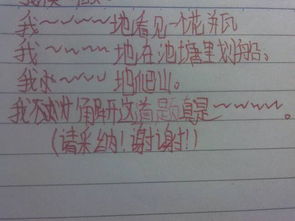 我~~~~地看见一个花井瓦
我~~~~地在池塘里划船。
我~~~地爬山。
我不解开这道题真是~~~~。
(请采纳!谢谢!)